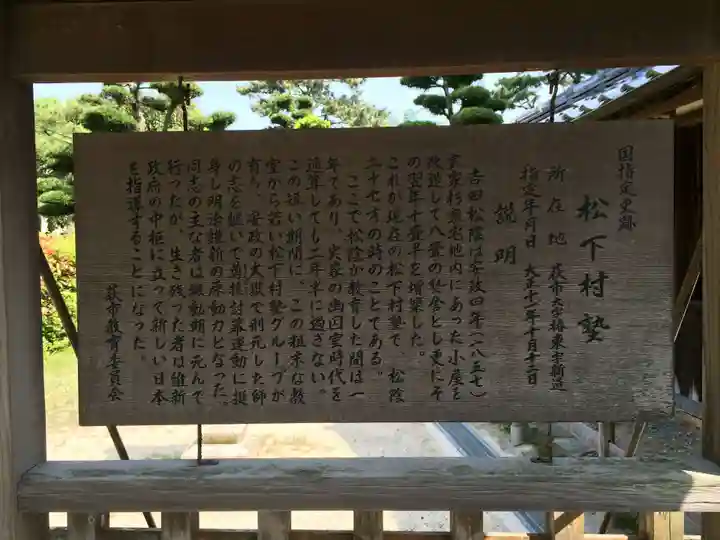 国指定史跡
松下村塾
所在地　萩市大字椿東字新道
指定年月日　大正十一年十月十二日
説明
吉田松陰は安政四年(一八五七)
実家杉家宅地内にあった小屋を
改造して八畳の塾舎とし更にそ
の翌年十畳半を増築した。
これが現在の松下村塾で、松陰
二十七才の時のことである。
ここで松陰が教育した間は一
年であり、実家の幽囚室時代を
通算しても二年半に過ぎない。
この短い期間に、この粗末な教
室から若い松下村塾グループが
育ち、安政の大獄で刑死した師
の志を継いで尊攘討幕運動に挺
身し明治維新の原動力となった。
同志の主な者は激動期に死んで
行ったが、生き残った者は維新
政府の中枢に立って新しい日本
を指導することになった。
萩市教育委員会